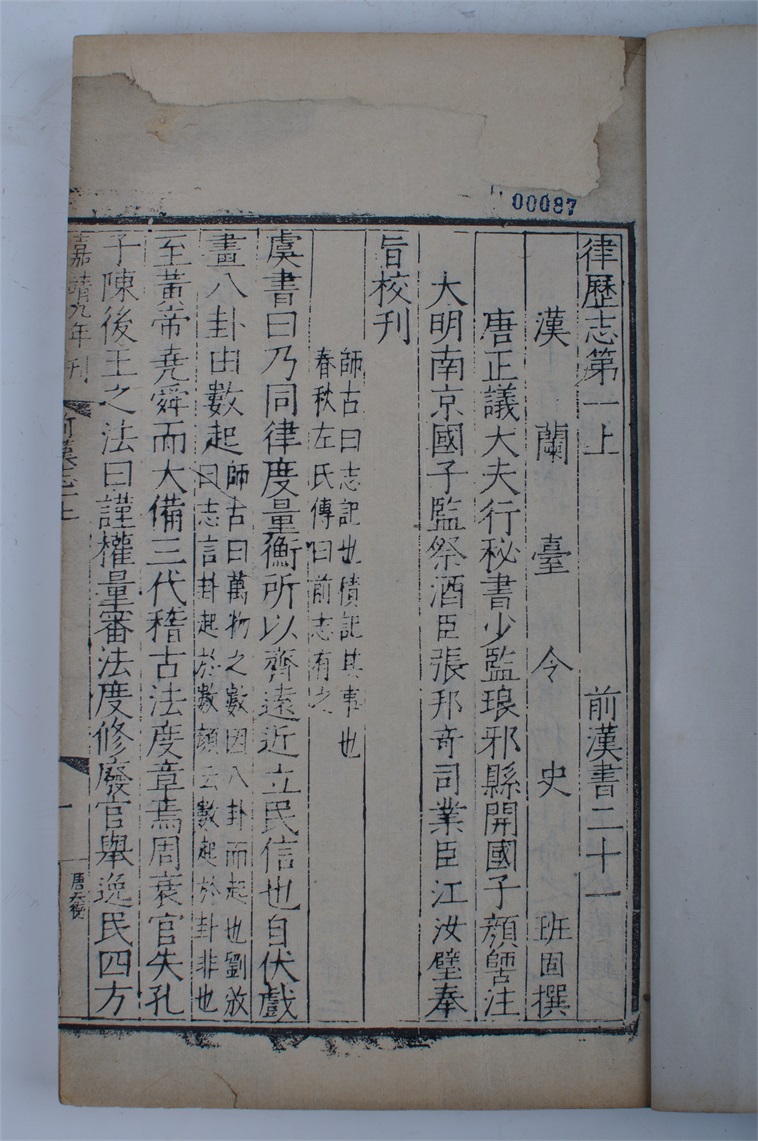 00087
律歷志第一上 前漢書二十一
漢蘭臺令史 班固撰
唐正議大夫行秘書少監琅邪縣開國子顏師古注
大明南京國子監祭酒臣張邦奇司業臣江汝璧奉
旨校刊
師古曰志記也積記其事也
春秋左氏傳曰前志有之
虞書曰乃同律度量衡所以齊遠近立民信也自伏戲
畫八卦由數起師古曰萬物之數因八卦而起也劉攽
曰志言卦起於數顏云數起於卦非也
至黃帝堯舜而大備三代稽古法度章焉周衰官失孔
子陳後王之法曰謹權量審法度修廢官舉逸民四方
嘉靖九年刊
前漢志一上
一